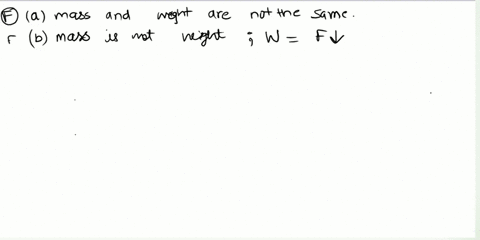 F (a) mass and weight are not the same.
F (b) mass is not weight ; W = F↓